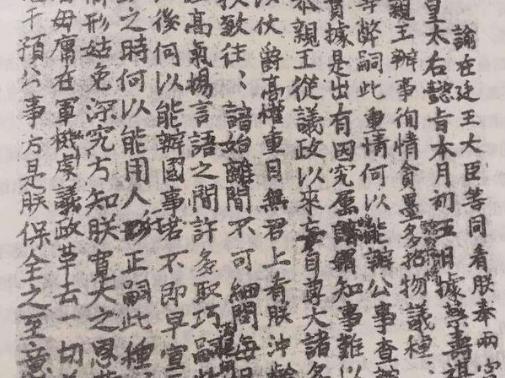 諭在廷王大臣等同看朕奉兩宮
皇太后懿旨本月初五日據蔡壽祺
親王辦事徇情貪墨多招物議種
等弊嗣此重情何以能辦公事查辦
實據是出有因究屬知事難以
恭親王從議政以來妄自尊大諸多
以仗爵高權重目無君上看朕沖齡
挾致往〻諳始離間不可細問每日
高氣揚言語之間許多取巧
後何以能辦國事若不即早宣
之時何以能用人行正嗣此種
情形姑免深究方知朕寬大之恩
毋庸在軍機處議政革去一切
干預公事方是朕保全之至意